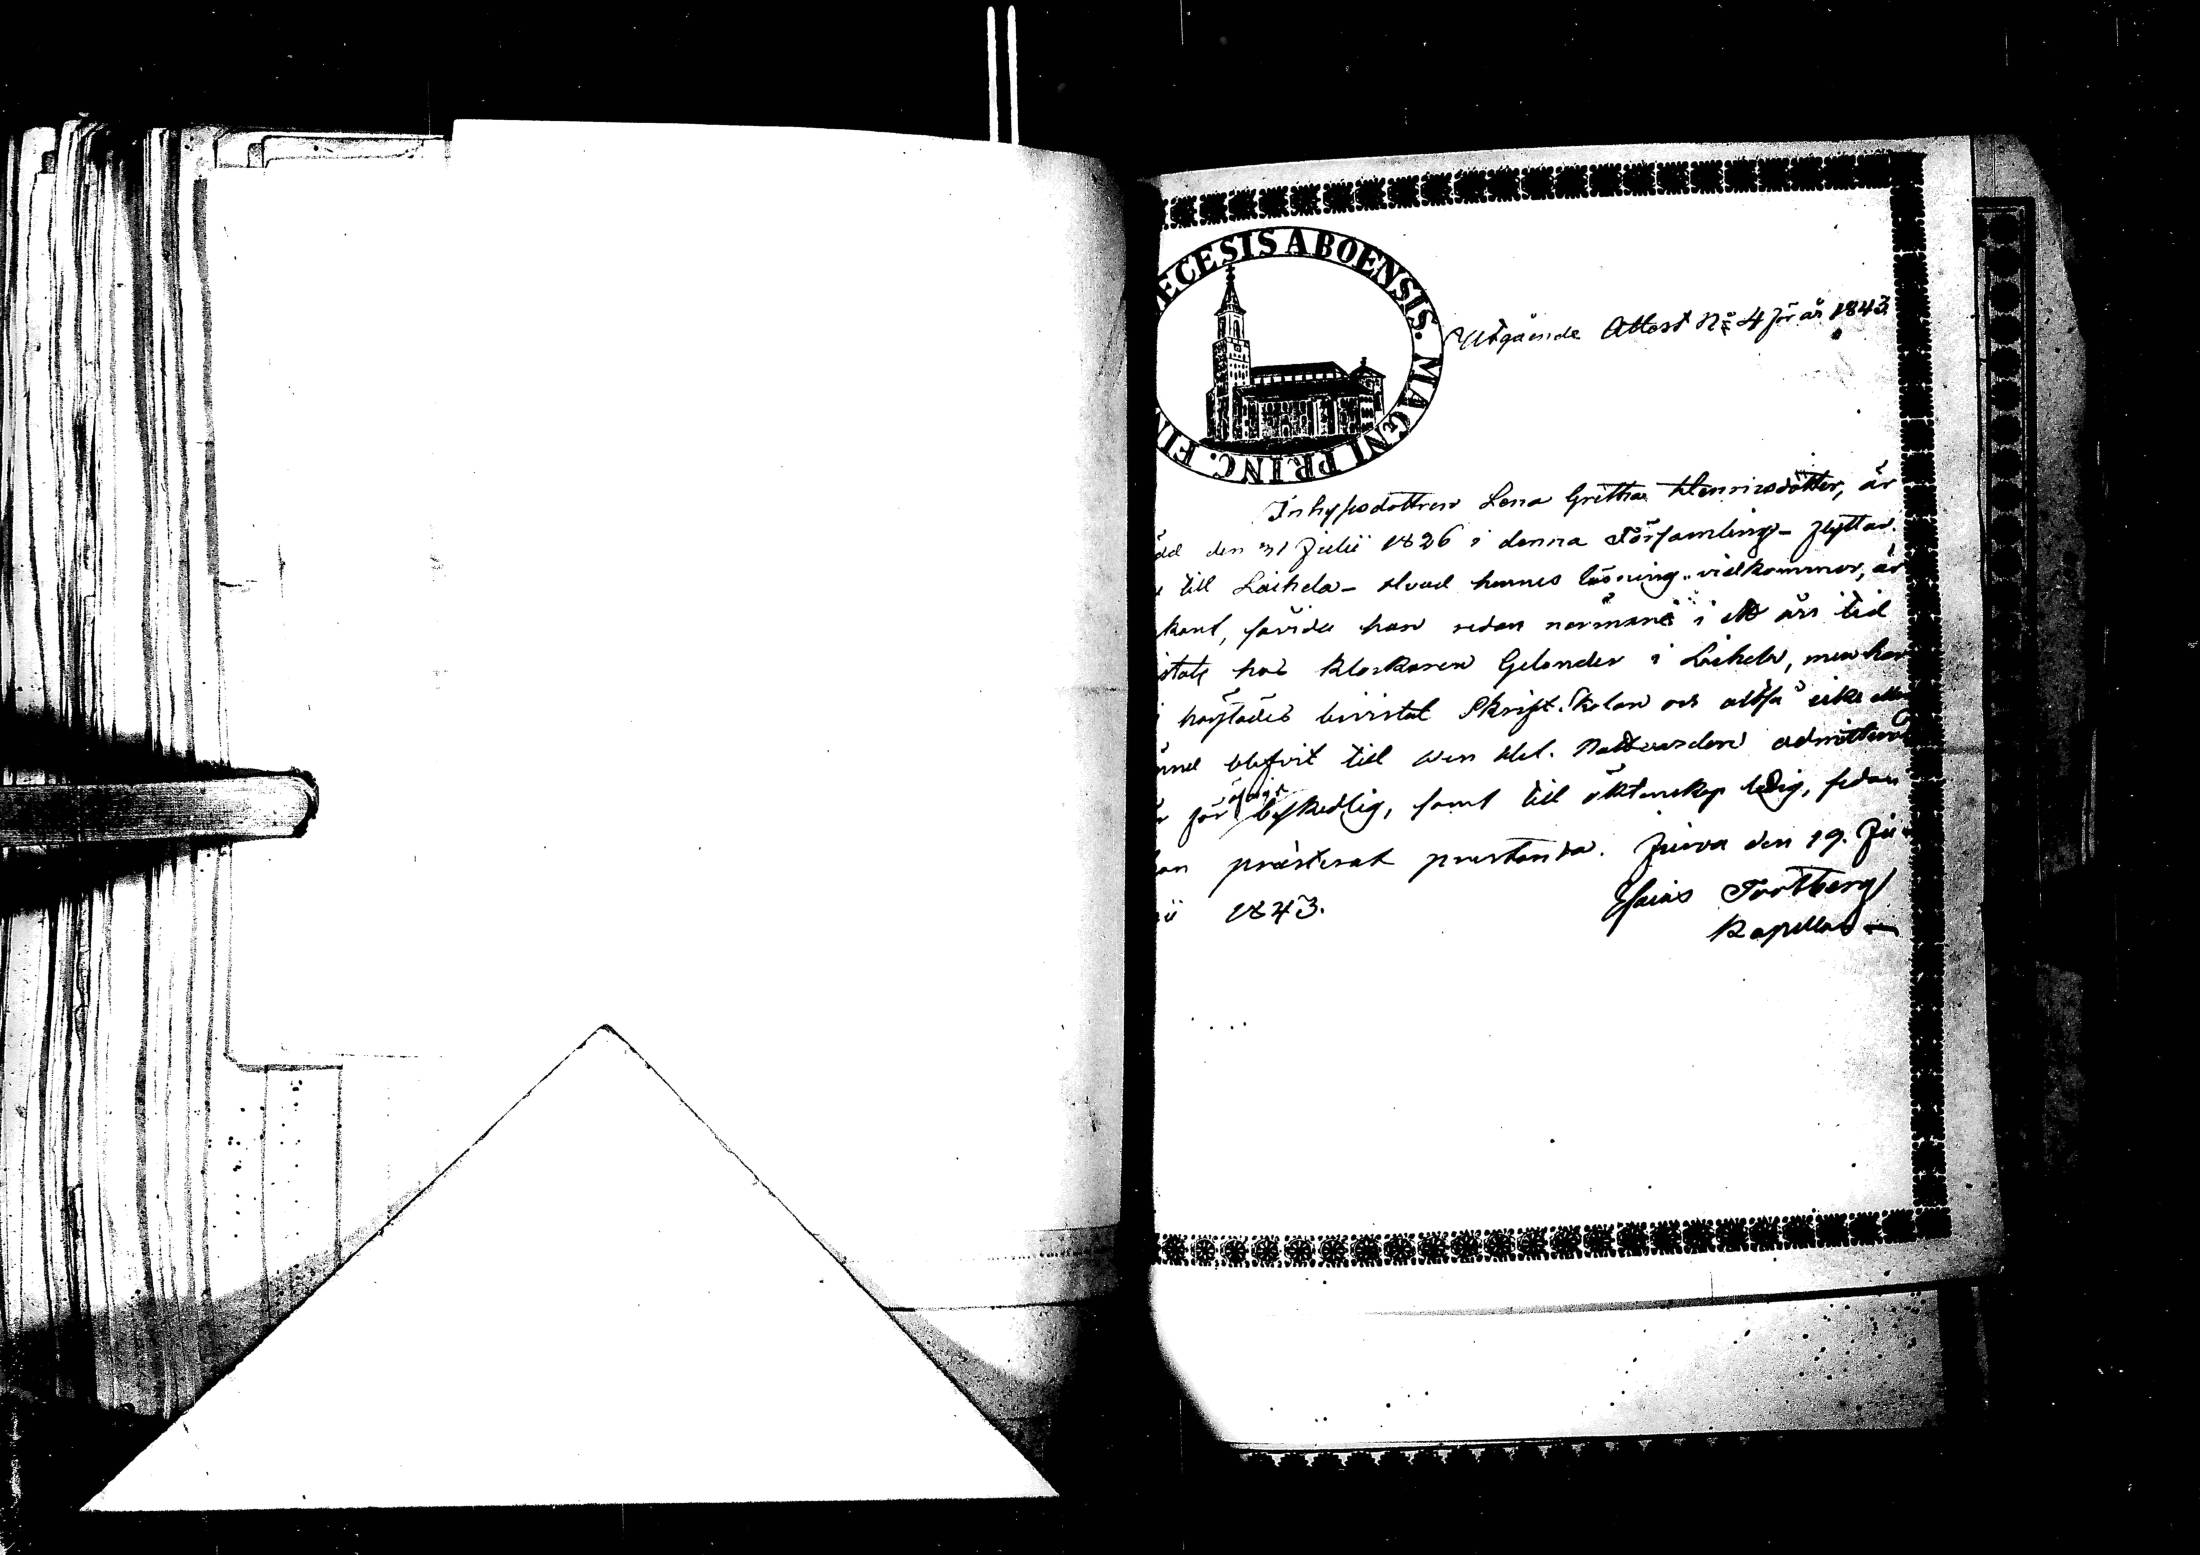 ECESIS ABOENSIS. MAGNI PRINC. FIN
Utgående Attest No 4 för år 1843.
Inhysesdottren Lena Gretha Henricsdotter, är
dd den 31 Julii 1826 i denna Församling - flyttar
till Laihela - Hvad hennes läsning vidkommer, är
kant, sävida hon redan närmare i ett års tid
istats hos Klockaren Gelander i Laihela, men har
havfades bivistat Skrift-Skolan och altså icke
blifvit till den Hel. Nattvarden admitterad
för öfrigt beskedlig, samt till äktenskap ledig, sedan
on prästerat prestanda. Jurva den 19. Ju-
ii 1843.
Esaias Tortberg
Kapellan